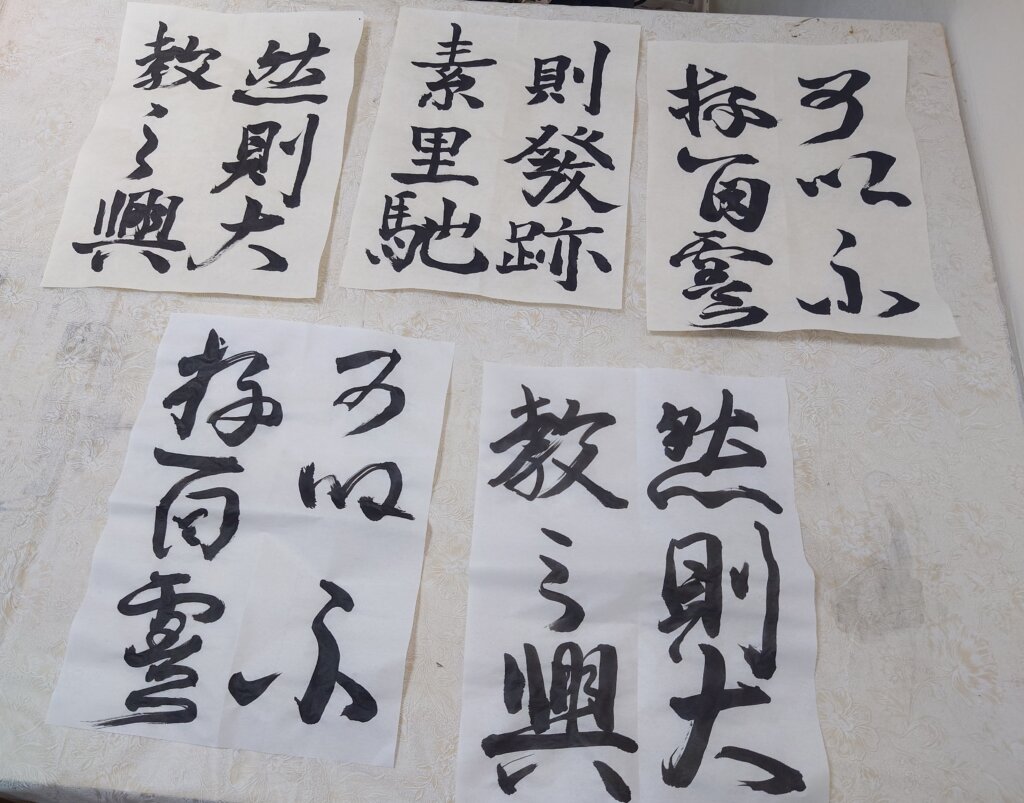 然則大
教之興
則發跡
素里馳
可以
百靈
可以
存百靈
然則大
教之興